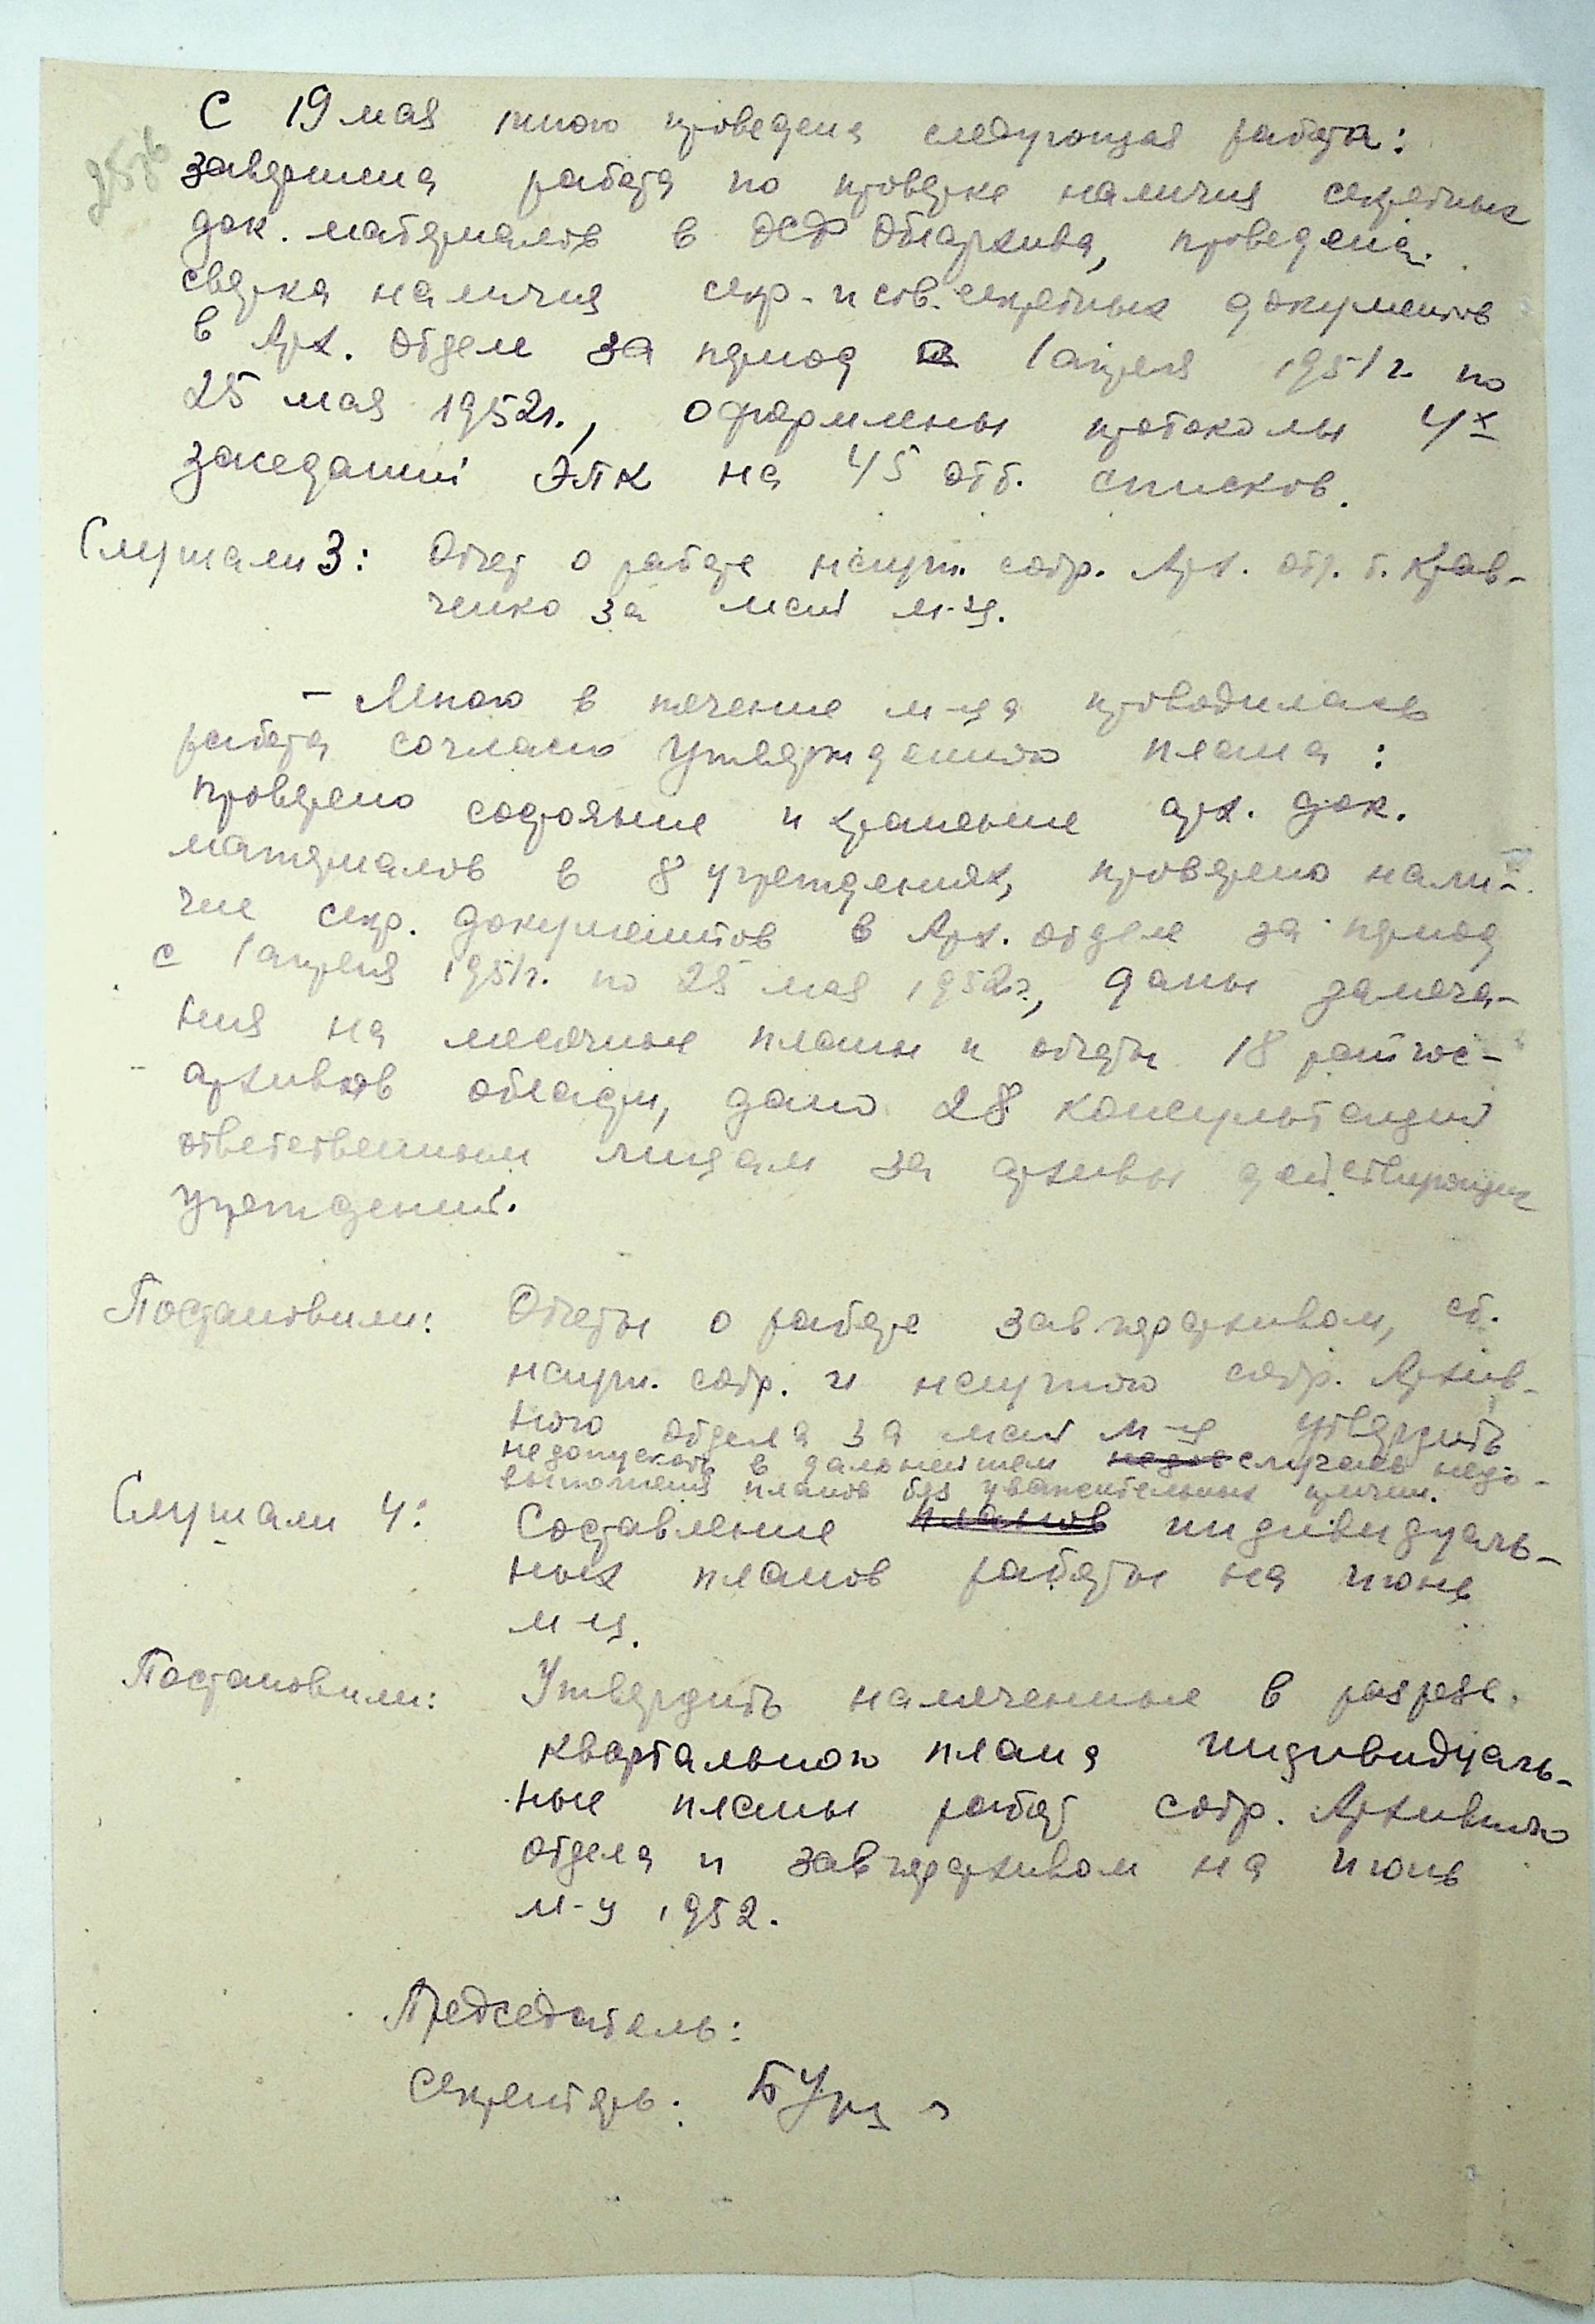 25об
С 19 мая мною проведена следующая работа:
завершена работа по проверке наличия секретных
док. материалов в ОСФ Облархива, проведена
сверка наличия секр. и сов. секретных документов
в Арх. отделе за период с 1 апреля 1951 г. по
25 мая 1952 г., оформлены протоколы 4х
заседаний ЭПК на 45 отб. списков.
Слушали 3: Отчет о работе научн. сотр. Арх. отд. т. Крав-
ченко за май м-ц.
– Мною в течение м-ца проводилась
работа согласно утвержденного плана:
проверено состояние и хранение арх. док.
материалов в 8 учреждениях, проверено нали-
чие секр. документов в Арх. отделе за период
с 1 апреля 1951 г. по 25 мая 1952 г., даны замеча-
ния на месячные планы и отчеты 18 райгос-
архивов области, дано 28 консультаций
ответственным лицам за архивы действующих
учреждений.
Постановили: Отчеты о работе завпартархивом, ст.
научн. сотр. и научного сотр. Архив-
ного отдела за май м-ц утвердить
недопускать в дальнейшем случаев недо-
выполнения планов без уважительных причин.
Слушали 4: Составление планов индивидуаль-
ных планов работы на июнь
м-ц.
Постановили: Утвердить намеченные в разрезе
квартального плана индивидуаль-
ные планы работ сотр. Архивного
отдела и завпартархивом на июнь
м-ц 1952.
Председатель:
Секретарь: